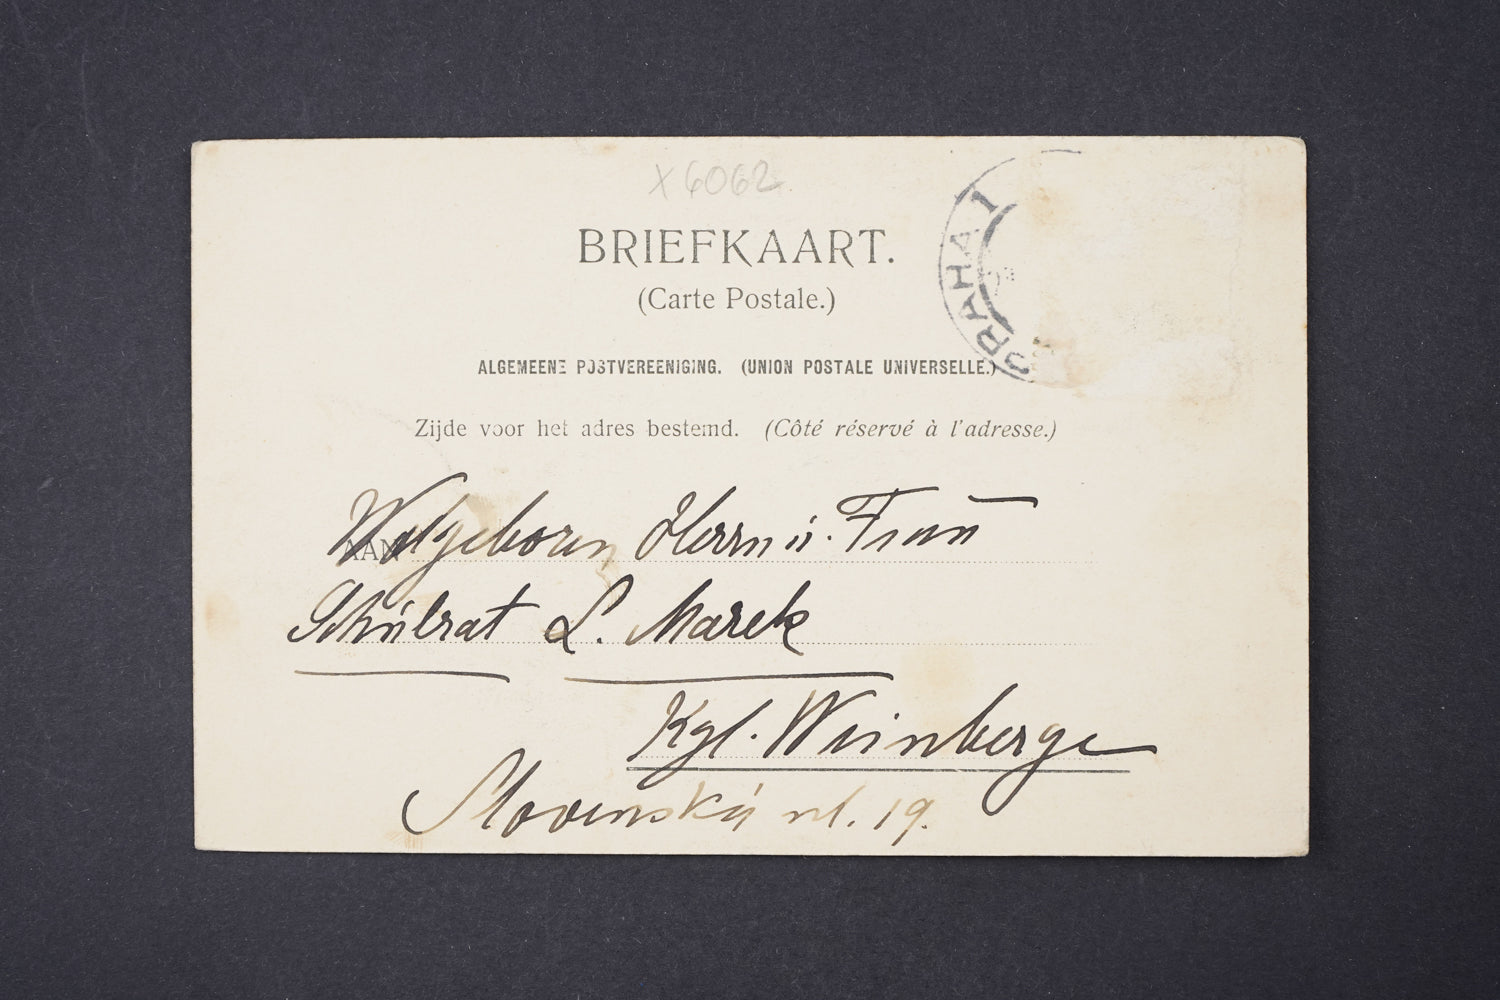 X 6062
BRIEFKAART.
(Carte Postale.)
PRAHA 1
ALGEMEENE POSTVEREENIGING. (UNION POSTALE UNIVERSELLE.)
Zijde voor het adres bestemd. (Côté réservé à l'adresse.)
AAN Wolgeboren Herrn u. Frau
Schulrat L. Marek
Kgl. Weinberge
Slovenská ul. 19.